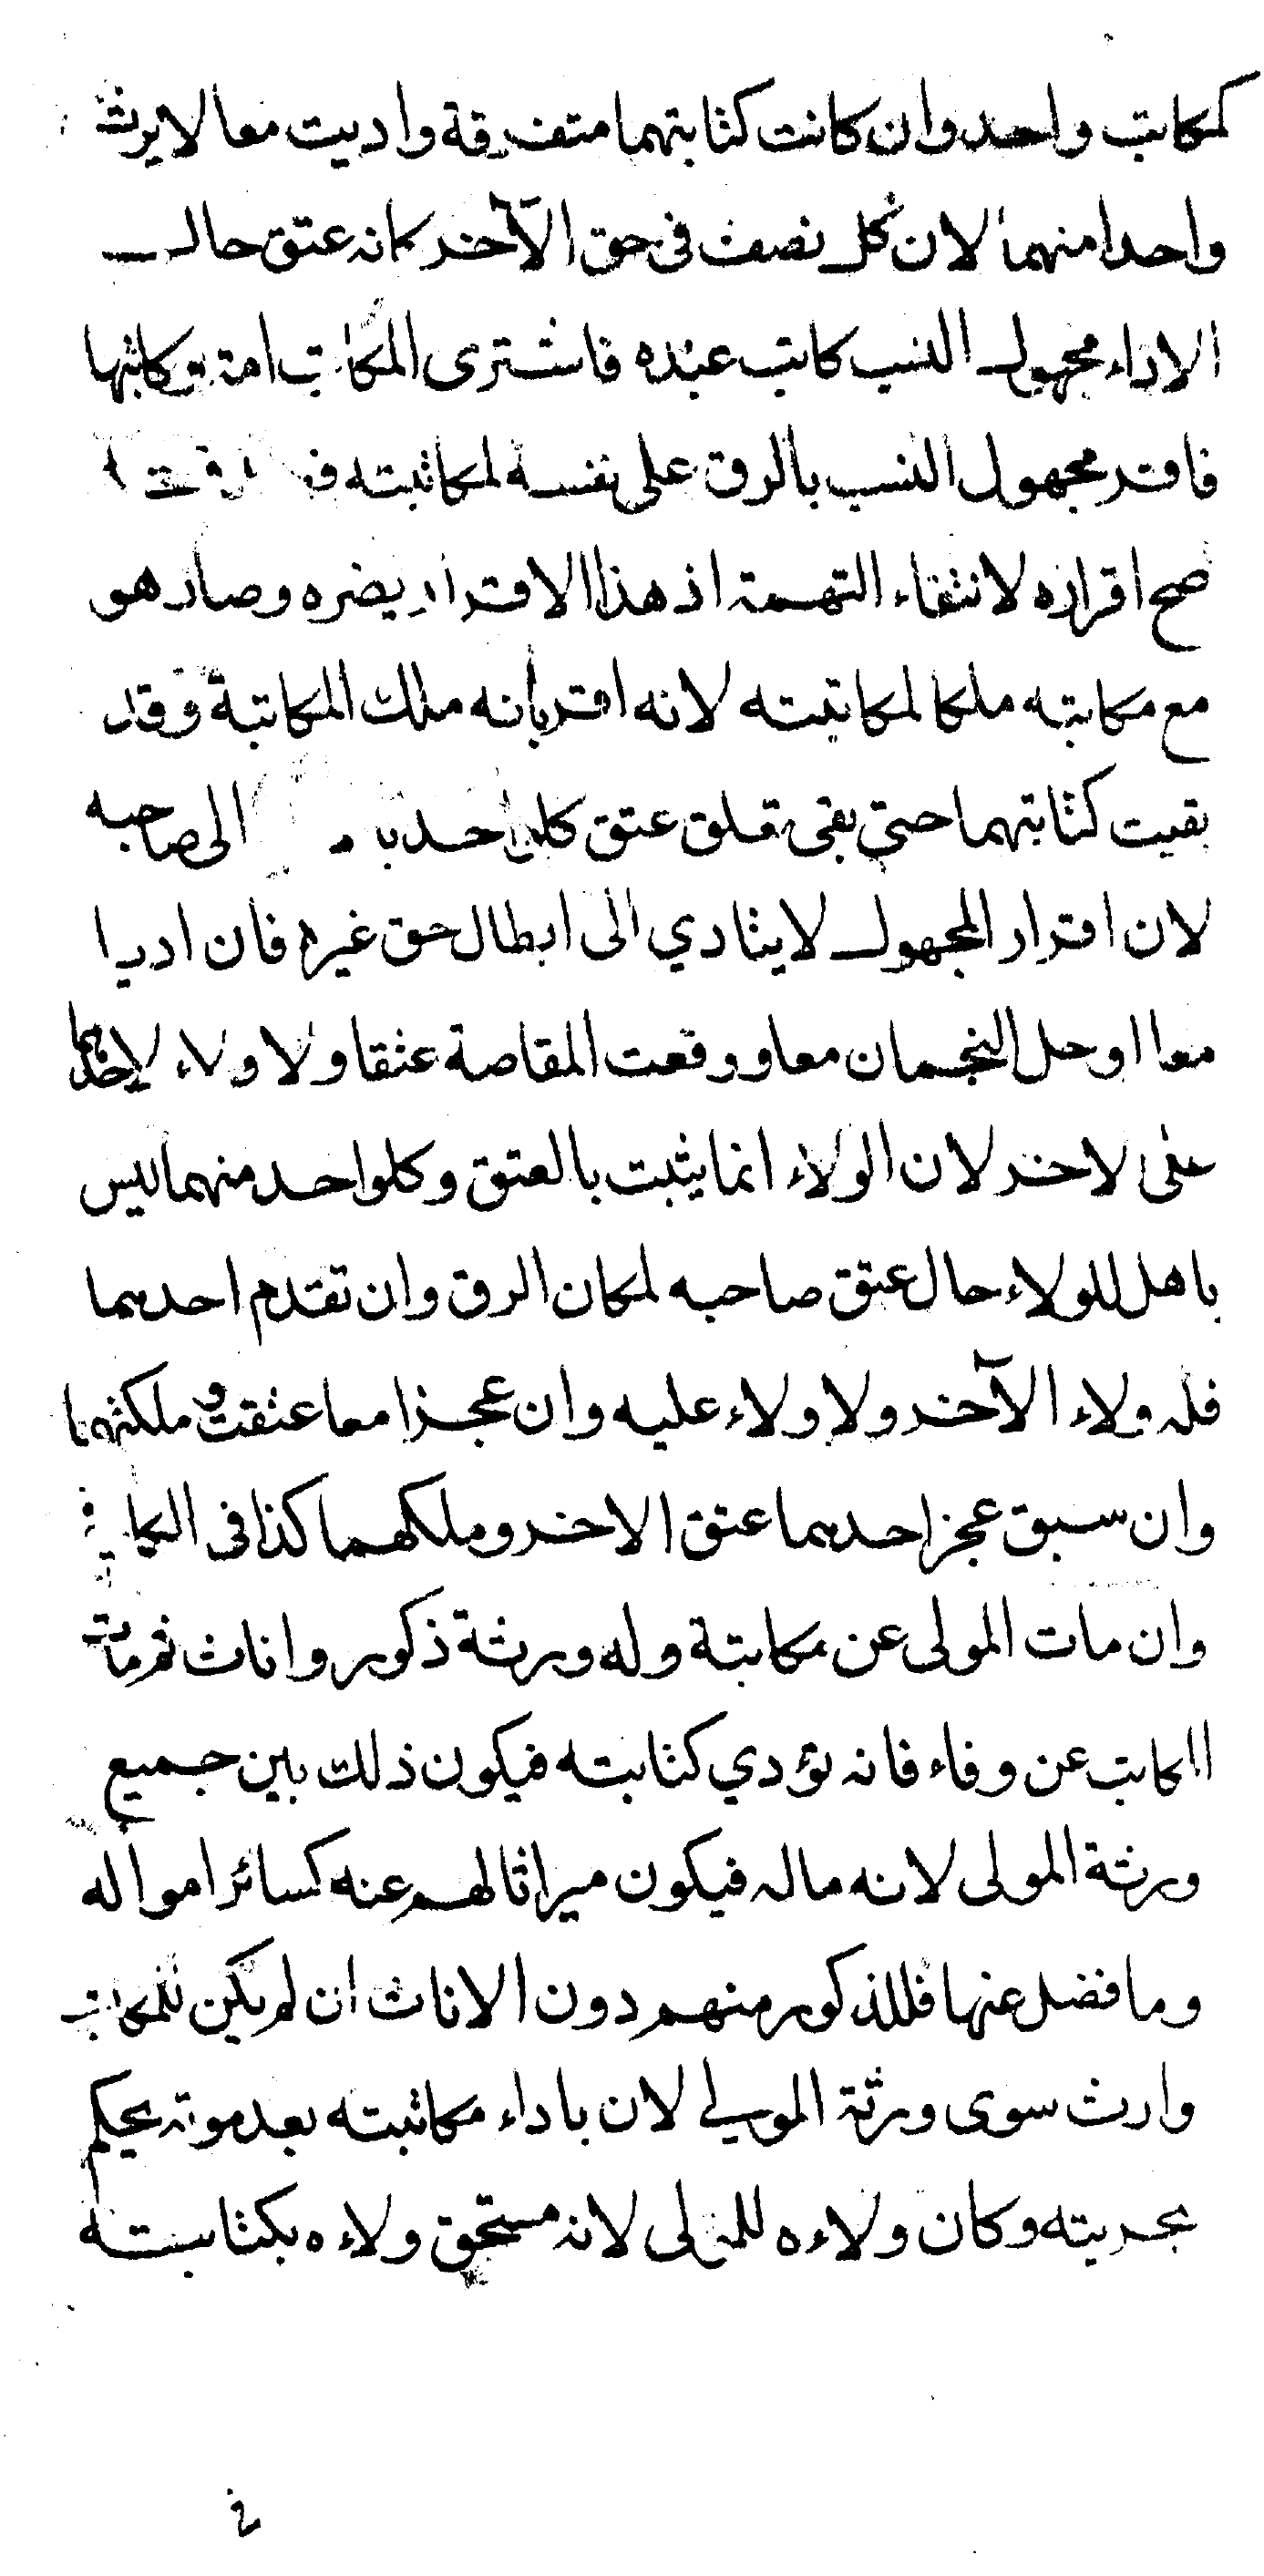 كمكاتب واحد وان كانت كتابتهما متفرقة واديت معا لا يرث
واحدا منهما لان كل نصف فى حق الآخر كانه عتق حال
الاداء مجهول النسب كاتب عبده فاشترى المكاتب امة وكاتبها
فاقر مجهول النسب بالرق على نفسه لمكاتبته
صح اقراره لانتفاء التهمة اذ هذا الاقرار يضره وصار هو
مع مكاتبه ملكا لمكاتبته لانه اقر بانه ملك المكاتبة وقد
بقيت كتابتهما حتى بقى تعلق عتق كل واحد الى صاحبه
لان اقرار المجهول لا يتادي الى ابطال حق غيره فان اديا
معا او حل النجمان معا ووقعت المقاصة عتقا ولا ولاء لاحدهما
على لاخر لان الولاء انما يثبت بالعتق وكل واحد منهما ليس
باهل للولاء حال عتق صاحبه لمكان الرق وان تقدم احدهما
فله ولاء الآخر ولا ولاء عليه وان عجزا معا عتقت وملكتهما
وان سبق عجز احدهما عتق الاخر وملكهما كذا فى الكافي
وان مات المولى عن مكاتبة وله ورثة ذكور واناث ثم مات
المكاتب عن وفاء فانه يؤدي كتابته فيكون ذلك بين جميع
ورثة المولى لانه ماله فيكون ميراثا لهم عنه كسائر امواله
وما فضل عنها فللذكور منهم دون الاناث ان لم يكن للمكاتب
وارث سوى ورثة المولى لان باداء مكاتبته بعد موته يحكم
بحريته وكان ولاءه للمولى لانه مستحق ولاءه بكتابته